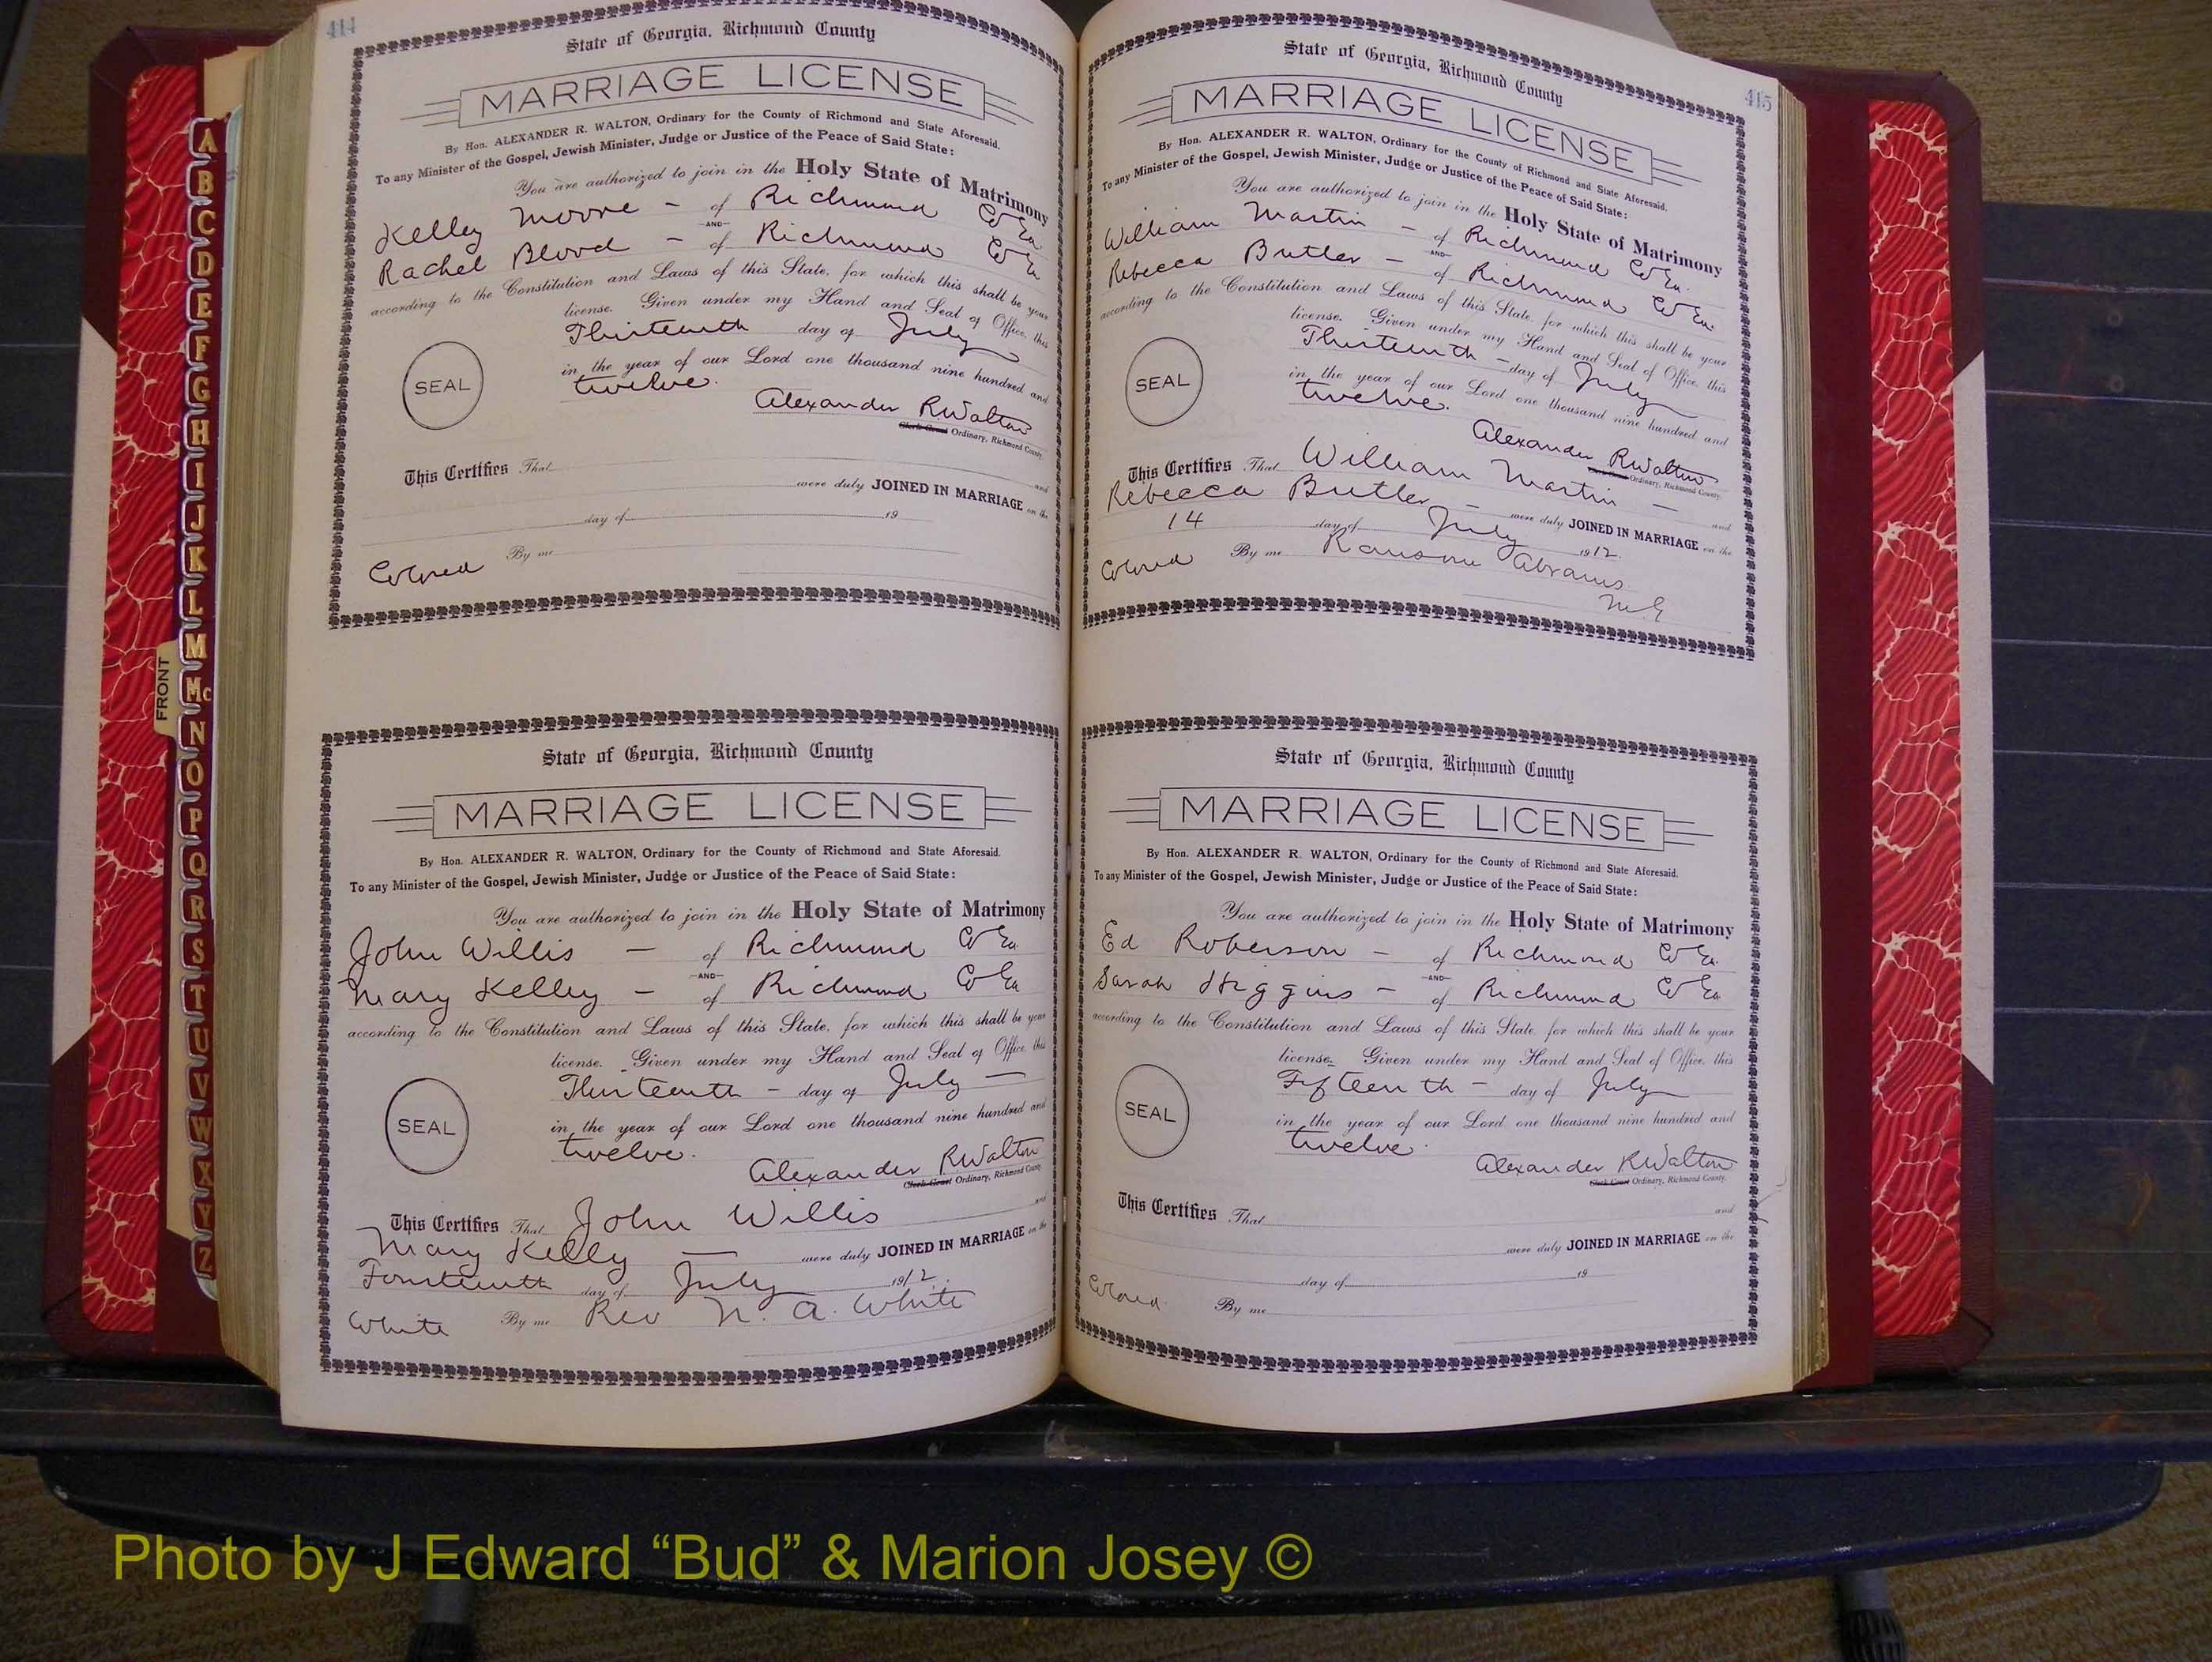 414
State of Georgia, Richmond County
MARRIAGE LICENSE
By Hon. ALEXANDER R. WALTON, Ordinary for the County of Richmond and State Aforesaid.
To any Minister of the Gospel, Jewish Minister, Judge or Justice of the Peace of Said State:
You are authorized to join in the Holy State of Matrimony
Kelley Moore - of Richmond Co Ga.
-AND-
Rachel Blood - of Richmond Co Ga
according to the Constitution and Laws of this State, for which this shall be your
license. Given under my Hand and Seal of Office, this
Thirteenth day of July
in the year of our Lord one thousand nine hundred and
twelve.
SEAL
Alexander R Walton
Clerk Court Ordinary, Richmond County.
This Certifies That and
were duly JOINED IN MARRIAGE on the
day of 19
Colored By me
State of Georgia, Richmond County
MARRIAGE LICENSE
By Hon. ALEXANDER R. WALTON, Ordinary for the County of Richmond and State Aforesaid.
To any Minister of the Gospel, Jewish Minister, Judge or Justice of the Peace of Said State:
You are authorized to join in the Holy State of Matrimony
John Willis - of Richmond Co Ga.
-AND-
Mary Kelley - of Richmond Co Ga
according to the Constitution and Laws of this State, for which this shall be your
license. Given under my Hand and Seal of Office, this
Thirteenth - day of July -
in the year of our Lord one thousand nine hundred and
twelve.
SEAL
Alexander R Walton
Clerk Court Ordinary, Richmond County.
This Certifies That John Willis and
Mary Kelley - were duly JOINED IN MARRIAGE on the
Fourteenth day of July 1912.
White By me Rev N. A. White
415
State of Georgia, Richmond County
MARRIAGE LICENSE
By Hon. ALEXANDER R. WALTON, Ordinary for the County of Richmond and State Aforesaid.
To any Minister of the Gospel, Jewish Minister, Judge or Justice of the Peace of Said State:
You are authorized to join in the Holy State of Matrimony
William Martin - of Richmond Co Ga.
-AND-
Rebecca Butler - of Richmond Co Ga.
according to the Constitution and Laws of this State, for which this shall be your
license. Given under my Hand and Seal of Office, this
Thirteenth - day of July
in the year of our Lord one thousand nine hundred and
twelve.
SEAL
Alexander R Walton
Clerk Court Ordinary, Richmond County.
This Certifies That William Martin - and
Rebecca Butler - were duly JOINED IN MARRIAGE on the
14 day of July 1912.
Colored By me Ransom Abrams
M G
State of Georgia, Richmond County
MARRIAGE LICENSE
By Hon. ALEXANDER R. WALTON, Ordinary for the County of Richmond and State Aforesaid.
To any Minister of the Gospel, Jewish Minister, Judge or Justice of the Peace of Said State:
You are authorized to join in the Holy State of Matrimony
Ed Roberson - of Richmond Co Ga.
-AND-
Sarah Higgins - of Richmond Co Ga
according to the Constitution and Laws of this State, for which this shall be your
license. Given under my Hand and Seal of Office, this
Fifteenth - day of July
in the year of our Lord one thousand nine hundred and
twelve.
SEAL
Alexander R Walton
Clerk Court Ordinary, Richmond County.
This Certifies That and
were duly JOINED IN MARRIAGE on the
day of 19
Colored By me
A
B
C
D
E
F
G
H
I
J
K
L
M
Mc
N
O
P
Q
R
S
T
U
V
W
X
Y
Z
FRONT
Photo by J Edward “Bud” & Marion Josey ©